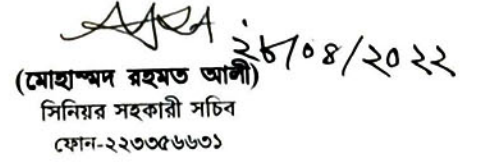 ২৮/০৪/২০২২
(মোহাম্মদ রহমত আলী)
সিনিয়র সহকারী সচিব
ফোন-২২৩৩৫৬৬৩১